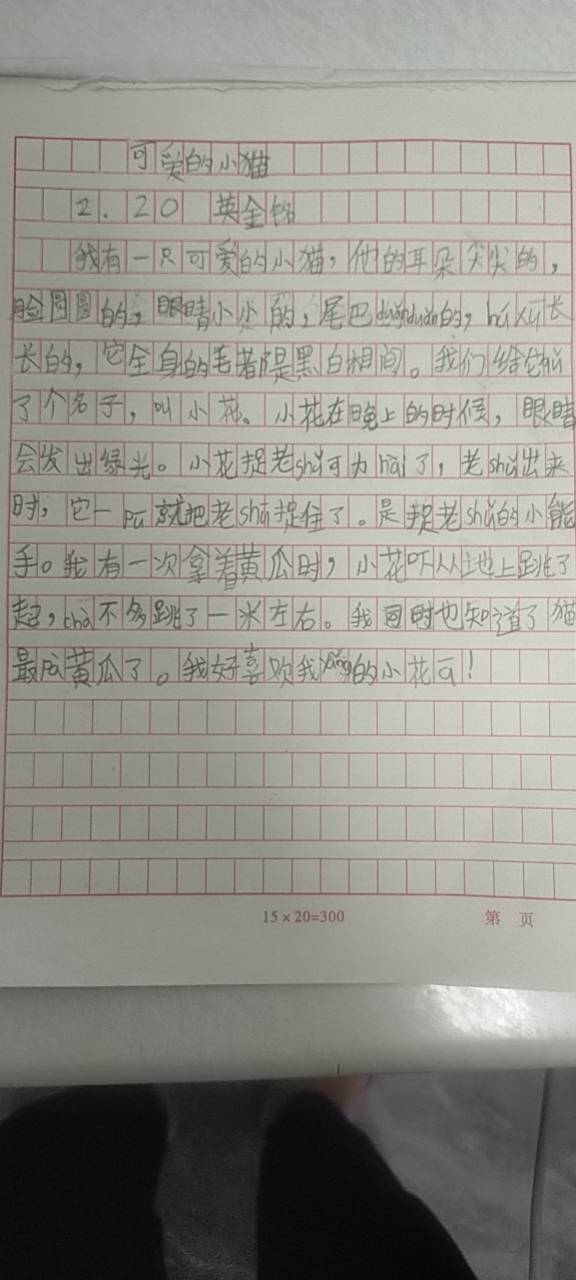 可爱的小猫
2.20 英金铭
我有一只可爱的小猫，他的耳朵尖尖的，
脸圆圆的，眼睛小小的，尾巴duǎnduǎn的，hú xū长
长的，它全身的毛都是黑白相间。我们给它
了个名子，叫小花。小花在晚上的时候，眼睛
会发出绿光。小花捉老shǔ可为hài了，老shǔ出来
时，它一pū就把老shǔ捉住了。是捉老shǔ的小能
手。我有一次拿着黄瓜时，小花吓从地上跳了
起，chà不多跳了一米左右。我同时也知道了猫
最 黄瓜了。我好喜欢我 的小花ā！
15×20=300
第 页